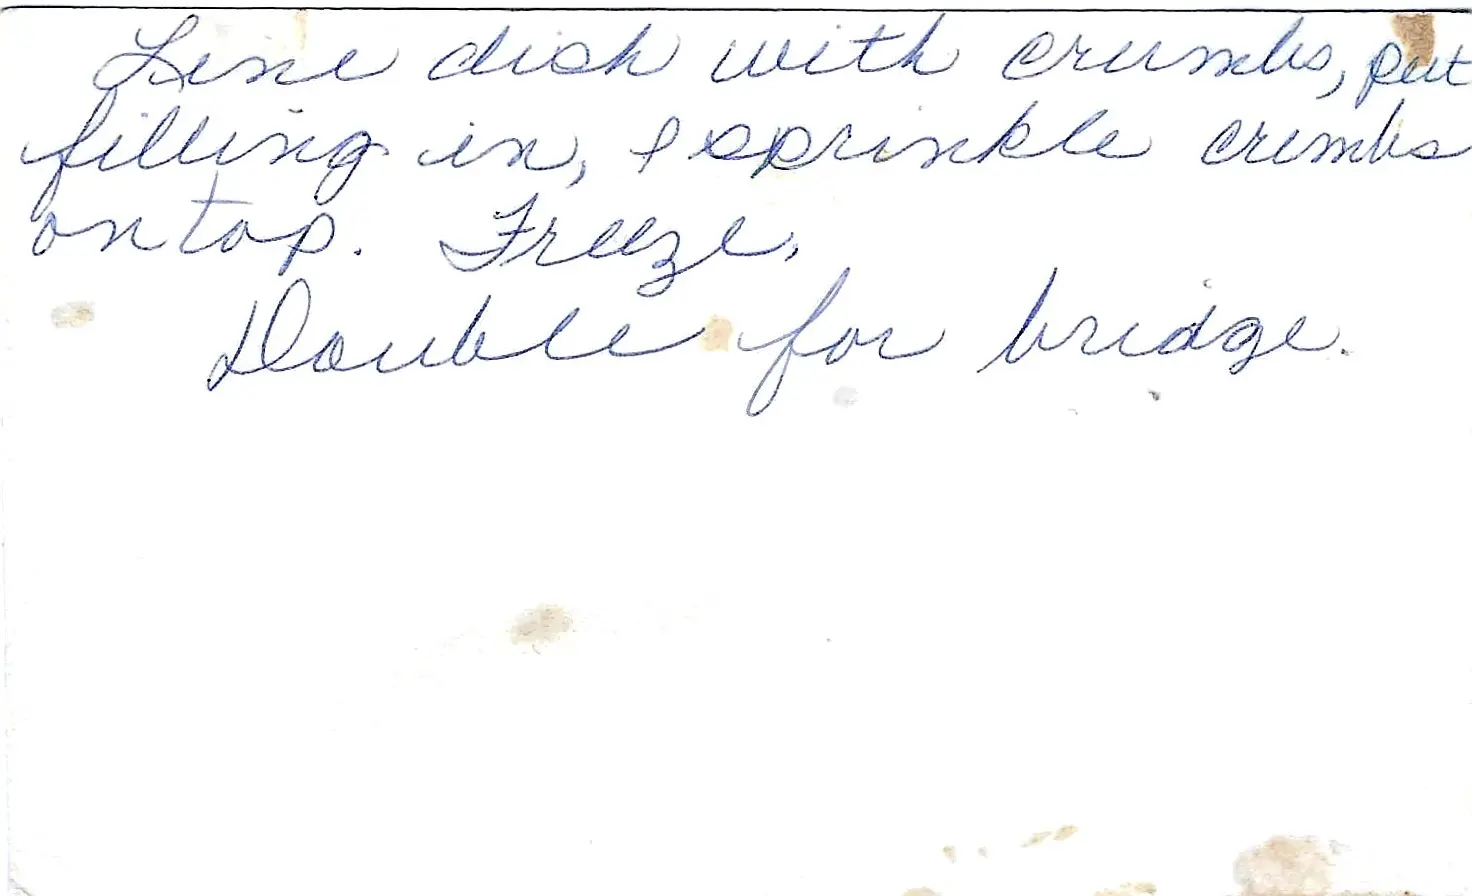 Line dish with crumbs, put
filling in, & sprinkle crumbs
on top. Freeze.
Double for bridge.